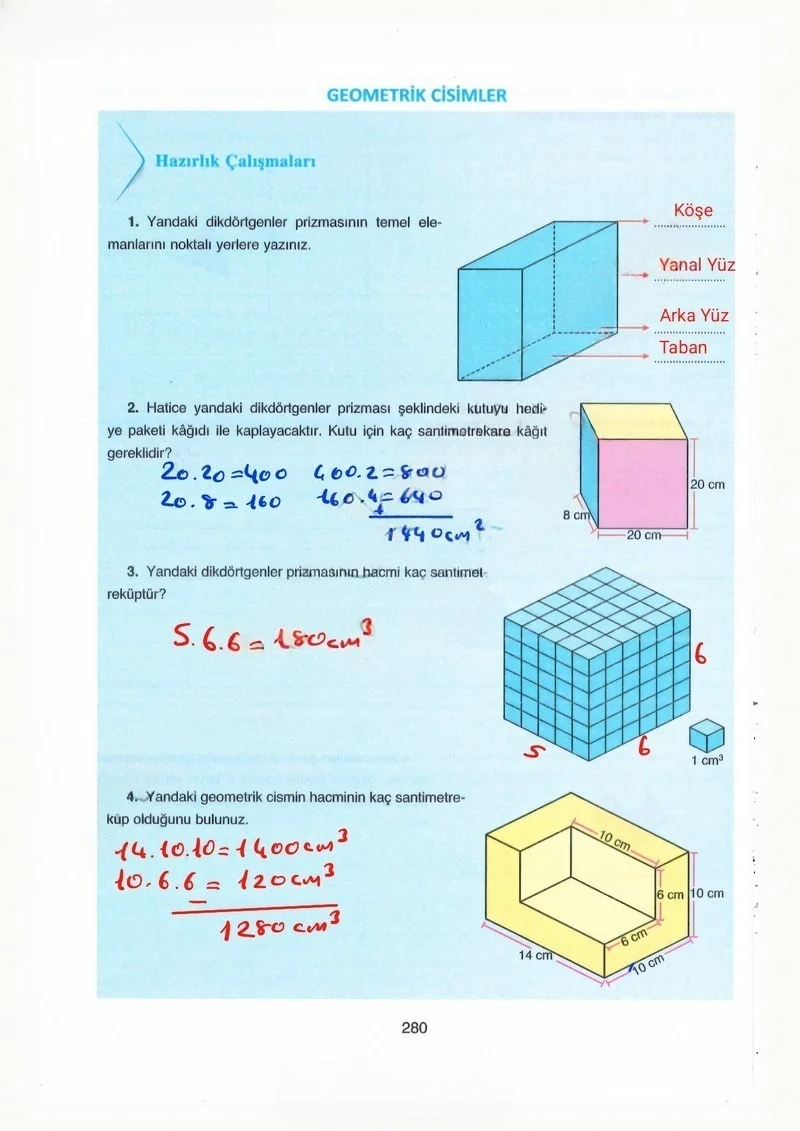 GEOMETRİK CİSİMLER
Hazırlık Çalışmaları
1. Yandaki dikdörtgenler prizmasının temel ele-
manlarını noktalı yerlere yazınız.
Köşe
Yanal Yüz
Arka Yüz
Taban
2. Hatice yandaki dikdörtgenler prizması şeklindeki kutuyu hedi-
ye paketi kâğıdı ile kaplayacaktır. Kutu için kaç santimetrekare kâğıt
gereklidir?
20.20=400 400.2=800
20.8=160 160.4=640
+
1440cm²
20 cm
8 cm
20 cm
3. Yandaki dikdörtgenler prizmasının hacmi kaç santimet-
reküptür?
5.6.6=180cm³
6
5
6
1 cm³
4. Yandaki geometrik cismin hacminin kaç santimetre-
küp olduğunu bulunuz.
14.10.10=1400cm³
10.6.6=120cm³
–
1280cm³
10 cm
6 cm
10 cm
6 cm
14 cm
10 cm
280